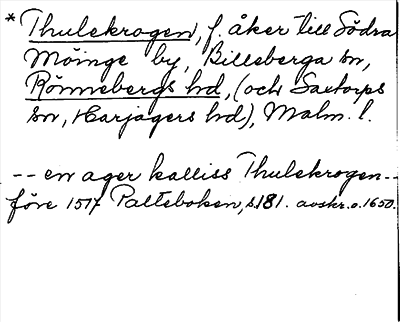 * Thulekrogen, f. åker till Södra
Möinge by, Billeberga sn,
Rönnebergs hd, (och Saxtorps
sn, Harjagers hd), Malm. l.
-- en ager kalliss Thulekrogen --
före 1517 Palteboken, s.181. avskr. o. 1650.